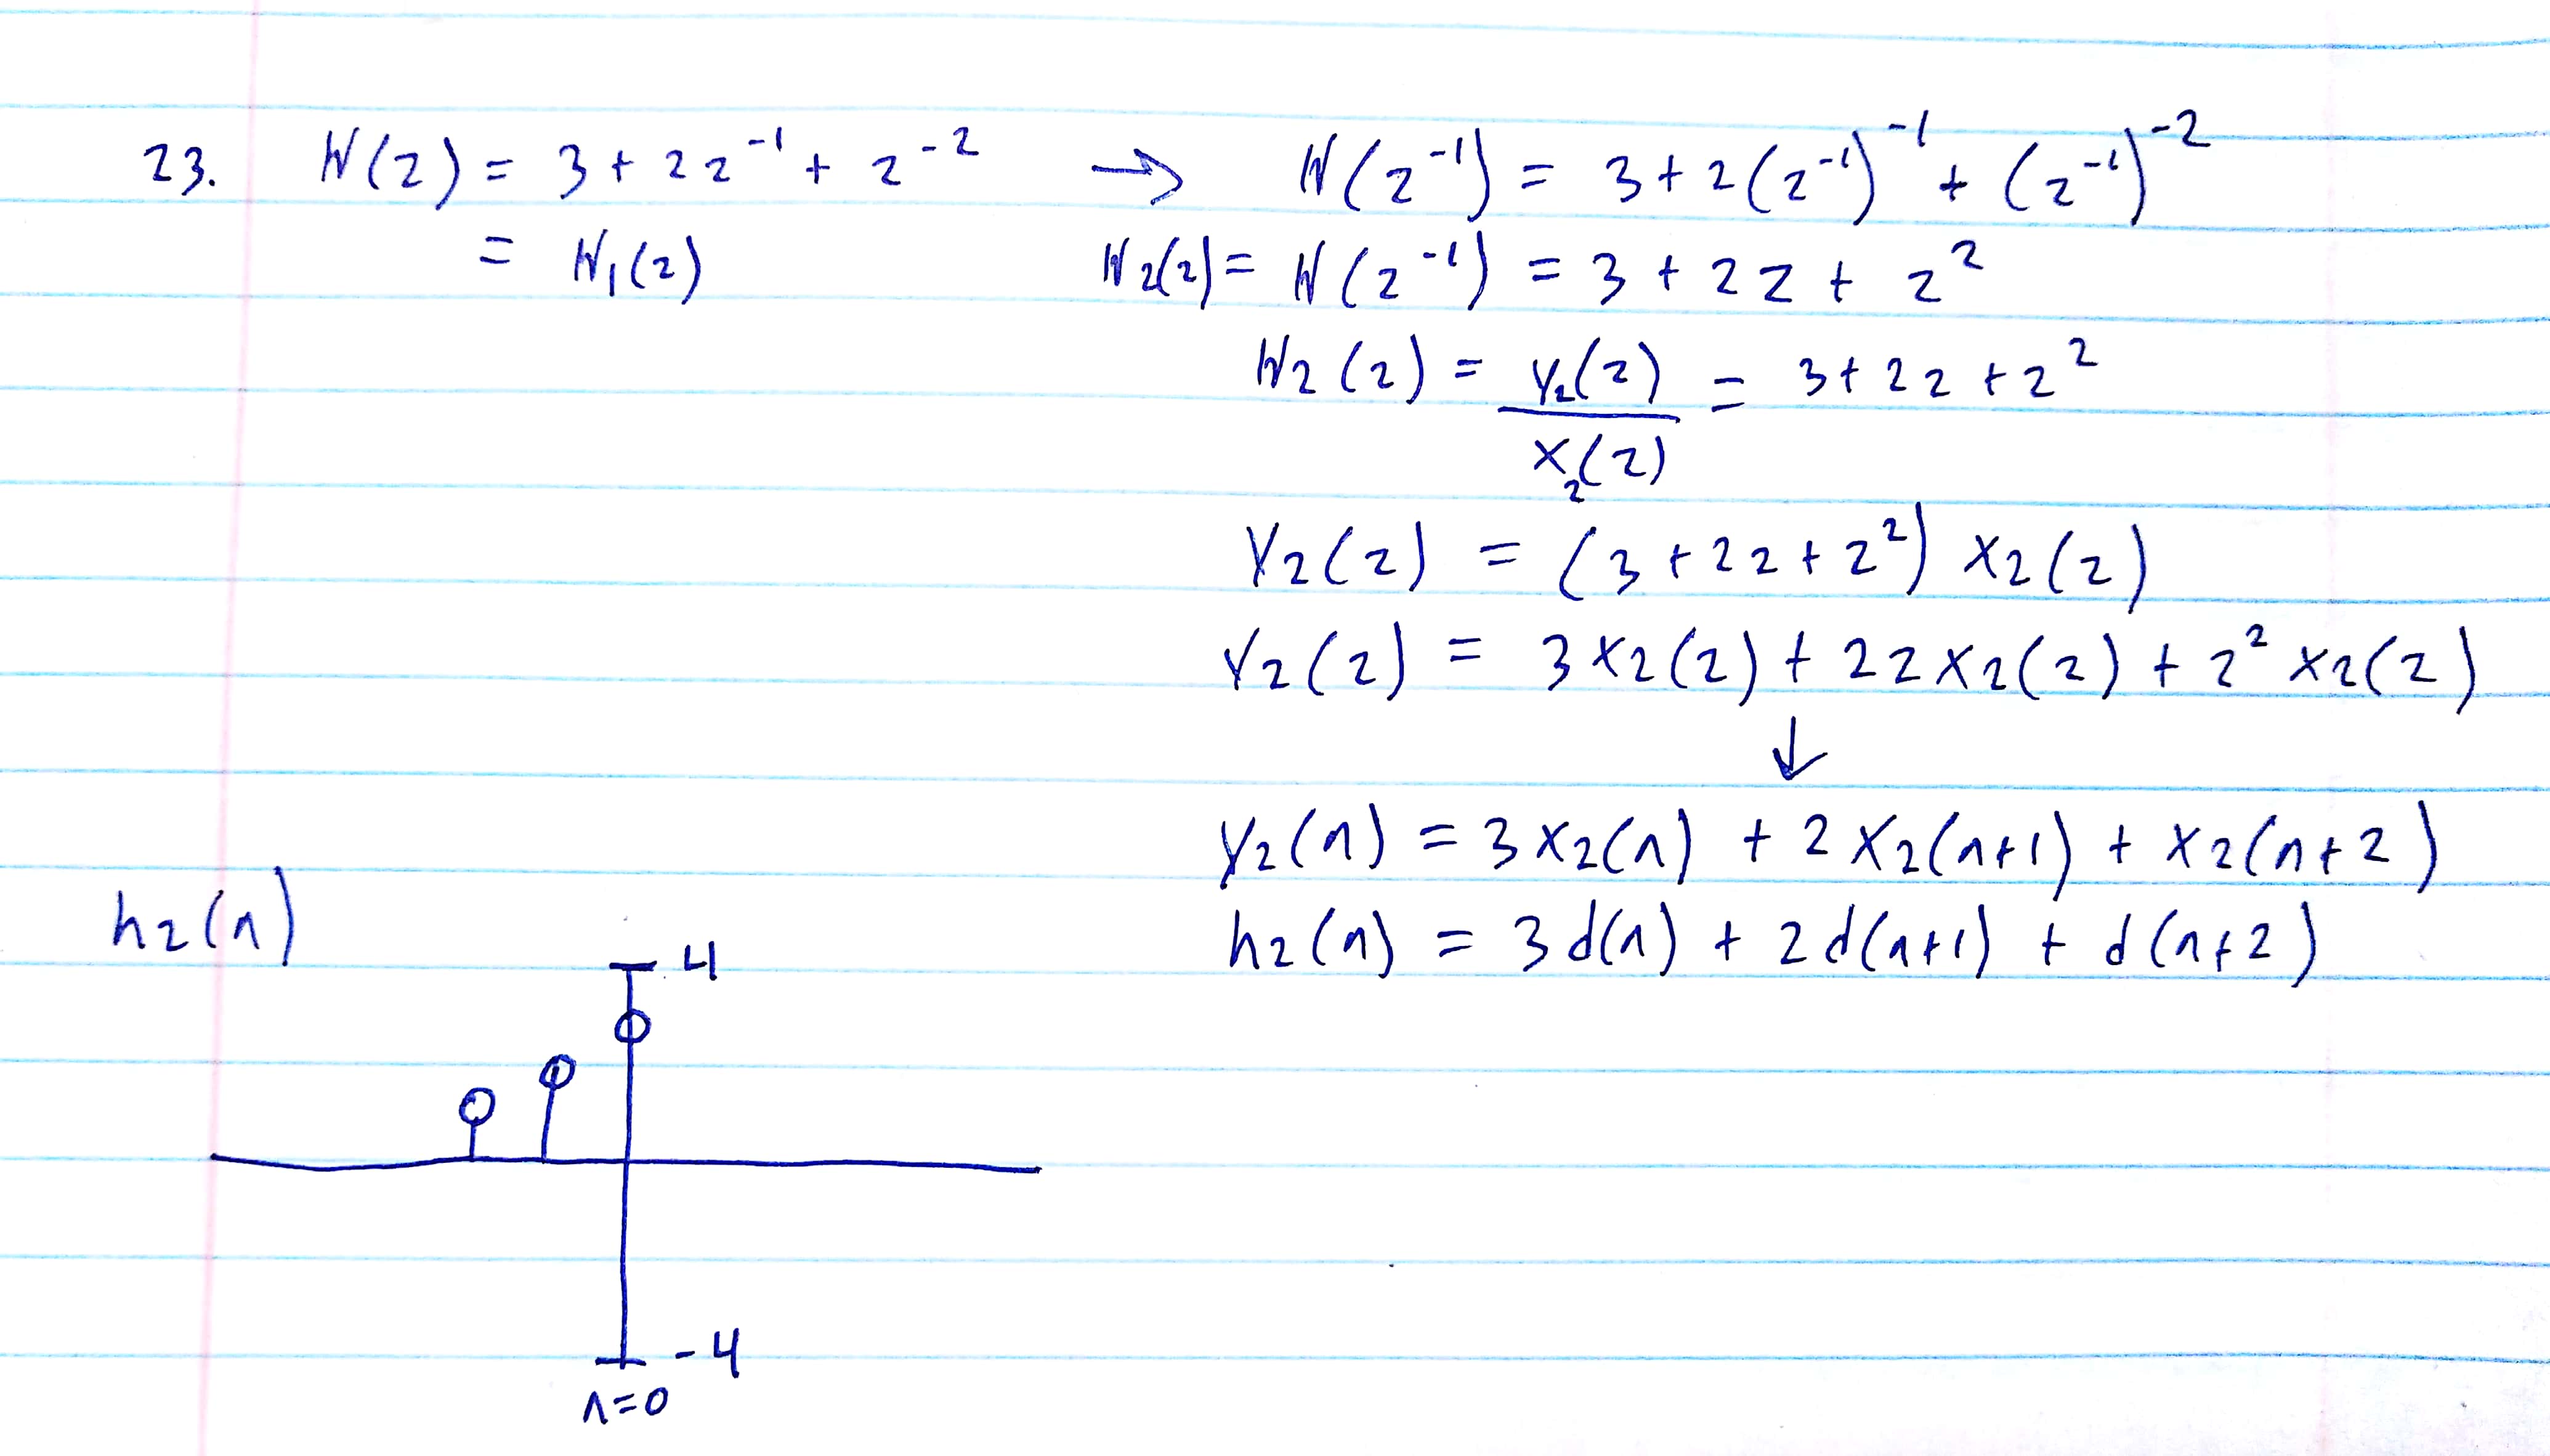 23. H(z) = 3 + 2z⁻¹ + z⁻² → H(z⁻¹) = 3 + 2(z⁻¹)⁻¹ + (z⁻¹)⁻²
= H₁(z) H₂(z) = H(z⁻¹) = 3 + 2z + z²
H₂(z) = Y₂(z) / X₂(z) = 3 + 2z + z²
Y₂(z) = (3 + 2z + z²) X₂(z)
Y₂(z) = 3X₂(z) + 2zX₂(z) + z² X₂(z)
↓
y₂(n) = 3x₂(n) + 2x₂(n+1) + x₂(n+2)
h₂(n) h₂(n) = 3d(n) + 2d(n+1) + d(n+2)
4
-4
n=0